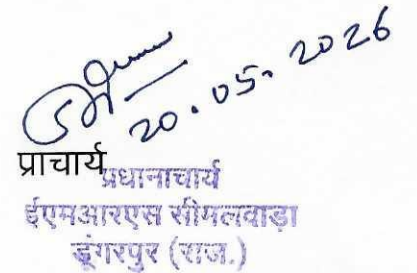 20.05.2026
प्राचार्य
प्रधानाचार्य
ईएमआरएस सीमलवाड़ा
डूंगरपुर (राज.)